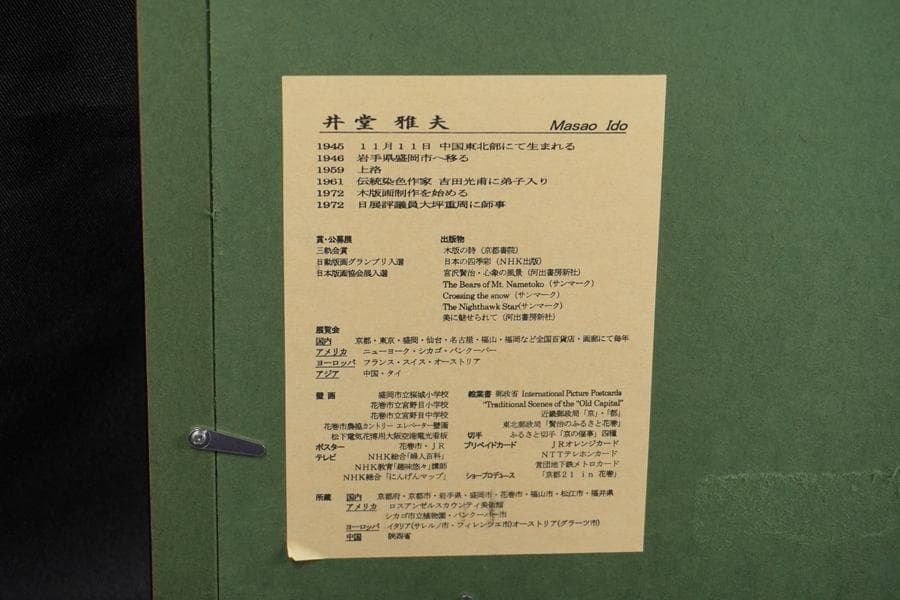 井堂 雅夫 Masao Ido
1945 11月11日 中国東北部にて生まれる
1946 岩手県盛岡市へ移る
1959 上洛
1961 伝統染色作家 吉田光甫に弟子入り
1972 木版画制作を始める
1972 日展評議員大坪重周に師事
賞・公募展
三軌会賞
日動版画グランプリ入選
日本版画協会展入選
出版物
木版の詩（京都書院）
日本の四季彩（NHK出版）
宮沢賢治・心象の風景（河出書房新社）
The Bears of Mt. Nametoko（サンマーク）
Crossing the snow（サンマーク）
The Nighthawk Star(サンマーク)
美に魅せられて（河出書房新社）
展覧会
国内 京都・東京・盛岡・仙台・名古屋・福山・福岡など全国百貨店・画廊にて毎年
アメリカ ニューヨーク・シカゴ・バンクーバー
ヨーロッパ フランス・スイス・オーストリア
アジア 中国・タイ
壁画 盛岡市立桜城小学校
花巻市立宮野目小学校
花巻市立宮野目中学校
花巻市農協カントリー エレベーター壁画
松下電気花博用大阪空港電光看板
ポスター 花巻市・JR
テレビ NHK総合「婦人百科」
NHK教育「趣味悠々」講師
NHK総合「にんげんマップ」
絵葉書 郵政省 International Picture Postcards
"Traditional Scenes of the "Old Capital"
近畿郵政局「京」・「都」
東北郵政局「賢治のふるさと花巻」
切手 ふるさと切手「京の催事」四種
プリペイドカード JRオレンジカード
NTTテレホンカード
営団地下鉄メトロカード
ショープロデュース 「京都21 in 花巻」
所蔵 国内 京都府・京都市・岩手県・盛岡市・花巻市・福山市・松江市・福井県
アメリカ ロスアンゼルスカウンティ美術館
シカゴ市立植物園・バンクーバー市
ヨーロッパ イタリア(サレルノ市・フィレンツェ市)オーストリア(グラーツ市)
中国 陝西省